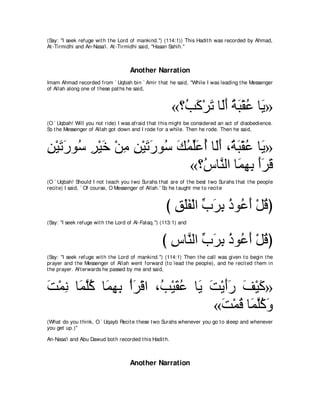 (Say: "I seek refuge with the Lord of mankind.") (114:1)) This Hadith was recorded by Ahmad,
At-Tirmidhi and An-Nasa'i. At-Tirmidhi said, "Hasan Sahih."
Another Narration
Imam Ahmad recorded from `Uqbah bin `Amir that he said, "While I was leading the Messenger
of Allah along one of these paths he said,
«يَا عُقْبَةُ أَلَا تَرْكَبُ؟»
(O `Uqbah! Will you not ride) I was afraid that this might be considered an act of disobedience.
So the Messenger of Allah got down and I rode for a while. Then he rode. Then he said,
«يَا عُقْبَةُ، أَلَا أُعَلِّمُكَ سُورَتَيْنِ مِنْ خَيْرِ سُورَتَيْنِ
قَرَأَ بِهِمَا النَّاسُ؟»
(O `Uqbah! Should I not teach you two Surahs that are of the best two Surahs that the people
recite) I said, `Of course, O Messenger of Allah.' So he taught me to recite
(قُلْ أَعُوذُ بِرَبِّ الْفَلَقِ )
(Say: "I seek refuge with the Lord of Al-Falaq,") (113:1) and
(قُلْ أَعُوذُ بِرَبِّ النَّاسِ )
(Say: "I seek refuge with the Lord of mankind.") (114:1) Then the call was given to begin the
prayer and the Messenger of Allah went forward (to lead the people), and he recited them in
the prayer. Afterwards he passed by me and said,
«كَيْفَ رَأَيْتَ يَا عُقَيْبُ، اقْرَأْ بِهِمَا كُلَّمَا نِمْتَ
وَكُلَّمَا قُمْتَ»
(What do you think, O `Uqayb Recite these two Surahs whenever you go to sleep and whenever
you get up.)"
An-Nasa'i and Abu Dawud both recorded this Hadith.
Another Narration